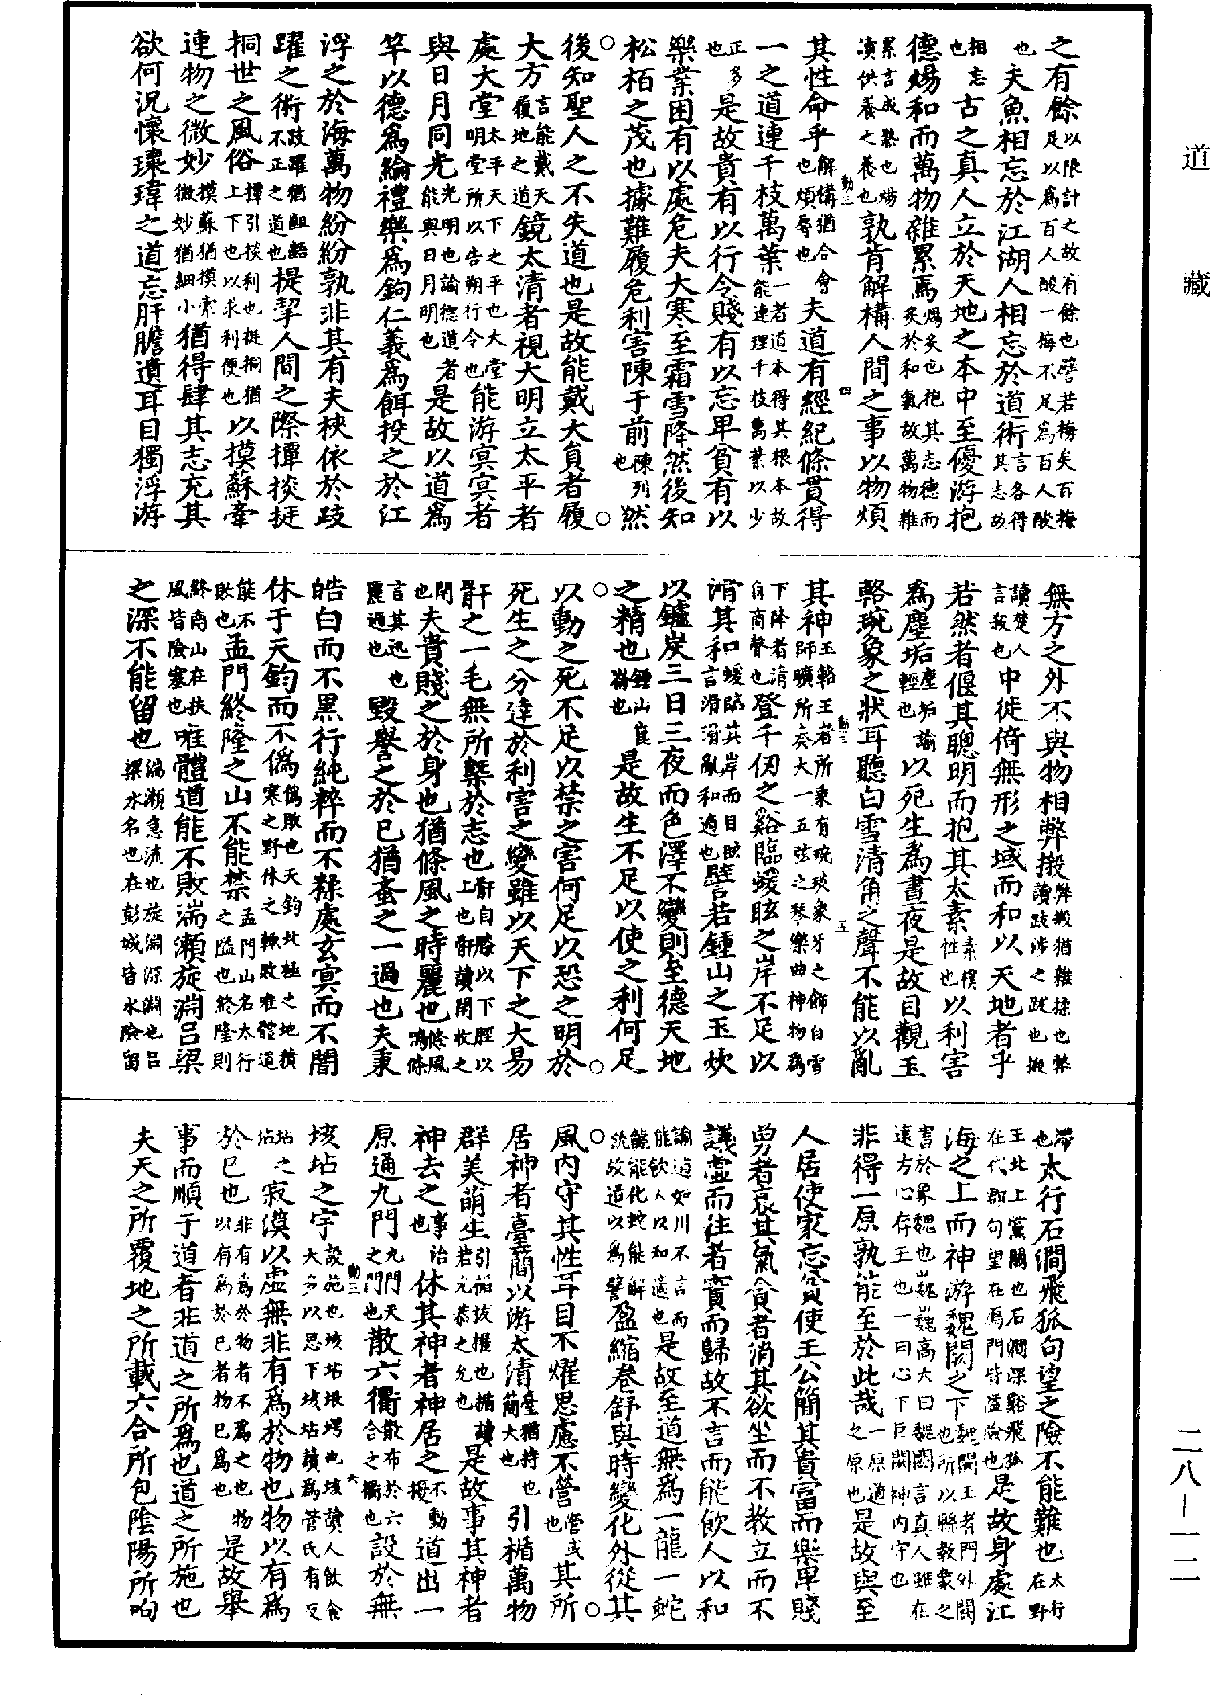 道藏
之有餘以限計之故有餘也譬若梅矣百梅足以為百人酸一梅不足為百人酸
也夫魚相忘於江湖人相忘於道術言各得其志故
相忘也古之真人立於天地之本中至優游抱
德煬和而萬物雜累焉煬炙也抱其志德而炙於和氣故萬物雜
累言成熟也煬讀供養之養也孰肯解構人間之事以物煩
其性命乎解構猶合會也煩辱也夫道有經紀條貫得
一之道連千枝萬葉一者道本得其根本故能連理千枝萬葉以少
正多也是故貴有以行令賤有以忘卑貧有以
樂業困有以處危夫大寒至霜雪降然後知
松柏之茂也據難履危利害陳于前陳列也然
後知聖人之不失道也是故能戴大負者履
大方言能戴天履地之道鏡太清者視大明立太平者
處大堂太平天下之平也大堂明堂所以告朔行令也能游冥冥者
與日月同光光明也諭德道者能與日月同明也是故以道為
竿以德為綸禮樂為鉤仁義為餌投之於江
浮之於海萬物紛紛孰非其有夫秧依於跂
躍之術跂躍猶齟齬不正之道也提挈人間之際撢掞挻
挏世之風俗撢引掞利也挻挏猶上下也以求利便也以摸蘇牽
連物之微妙摸蘇猶摸索微妙猶細小猶得肆其志充其
欲何況懷瓌瑋之道忘肝膽遺耳目獨浮游
無方之外不與物相弊摋弊摋猶雜揉也弊讀跋涉之跋也摋
讀楚人言殺也中徙倚無形之域而和以天地者乎
若然者偃其聰明而抱其太素素樸性也以利害
為塵垢塵垢諭輕也以死生為晝夜是故目觀玉
輅琬象之狀耳聽白雪清角之聲不能以亂
其神玉輅王者所乘有琬琰象牙之飾白雪師曠所奏大一五弦之琴樂曲神物為
下降者清角商聲也登千仞之谿臨蝯眩之岸不足以
滑其和蝯臨其岸而目眩言滑滑亂和適也譬若鍾山之玉炊
以鑪炭三日三夜而色澤不變則至德天地
之精也鍾山崑崙也是故生不足以使之利何足
以動之死不足以禁之害何足以恐之明於
死生之分達於利害之變雖以天下之大易
骭之一毛無所槩於志也骭自膝以下脛以上也骭讀閈收之
閈也夫貴賤之於身也猶條風之時麗也條風鳴條
言其迅也麗過也毀譽之於已猶蚉之一過也夫秉
皓白而不黑行純粹而不糅處玄冥而不闇
休于天鈞而不偽偽敗也天鈞北極之地積寒之野休之輒敗唯體道
能不敗也孟門終隆之山不能禁孟門山名太行之隘也終隆則
終南山在扶風皆險塞也唯體道能不敗湍瀨旋淵呂梁
之深不能留也湍瀨急流也旋淵深淵也呂梁水名也在彭城皆水險留
滯也太行石澗飛狐句望之險不能難也太行在野
王北上黨關也石澗深谿飛狐在代郡句望在鴈門皆隘險也是故身處江
海之上而神游魏闕之下魏闕王者門外闕也所以縣教象之
書於象魏也巍巍高大曰魏闕言真人雖在遠方心存王也一曰心下巨闕神內守也
非得一原孰能至於此哉一原道之原也是故與至
人居使家忘貧使王公簡其貴富而樂卑賤
勇者衰其氣貪者消其欲坐而不教立而不
議虛而往者實而歸故不言而能飲人以和
諭道如川不言而能飲人以和適也是故至道無為一龍一蛇
龍能化蛇能解蛻故道以為譬盈縮卷舒與時變化外從其
風內守其性耳目不燿思慮不營營惑也其所
居神者臺簡以游太清臺猶持也簡大也引楯萬物
群美萌生引楯拔擢也楯讀若允恭之允也是故事其神者
神去之事治也休其神者神居之不動擾道出一
原通九門九門天之門也散六衢散布於六合之衢也設於無
垓坫之宇設施也垓坫垠堮也垓讀人飲食大多以思下垓坫讀為管氏有反
坫之坫寂漠以虛無非有為於物也物以有為
於已也非有為於物者不為之也物以有為於已者物已為也是故舉
事而順于道者非道之所為也道之所施也
夫天之所覆地之所載六合所包陰陽所呴
動三
四
動三
五
動三
六
二八—一二